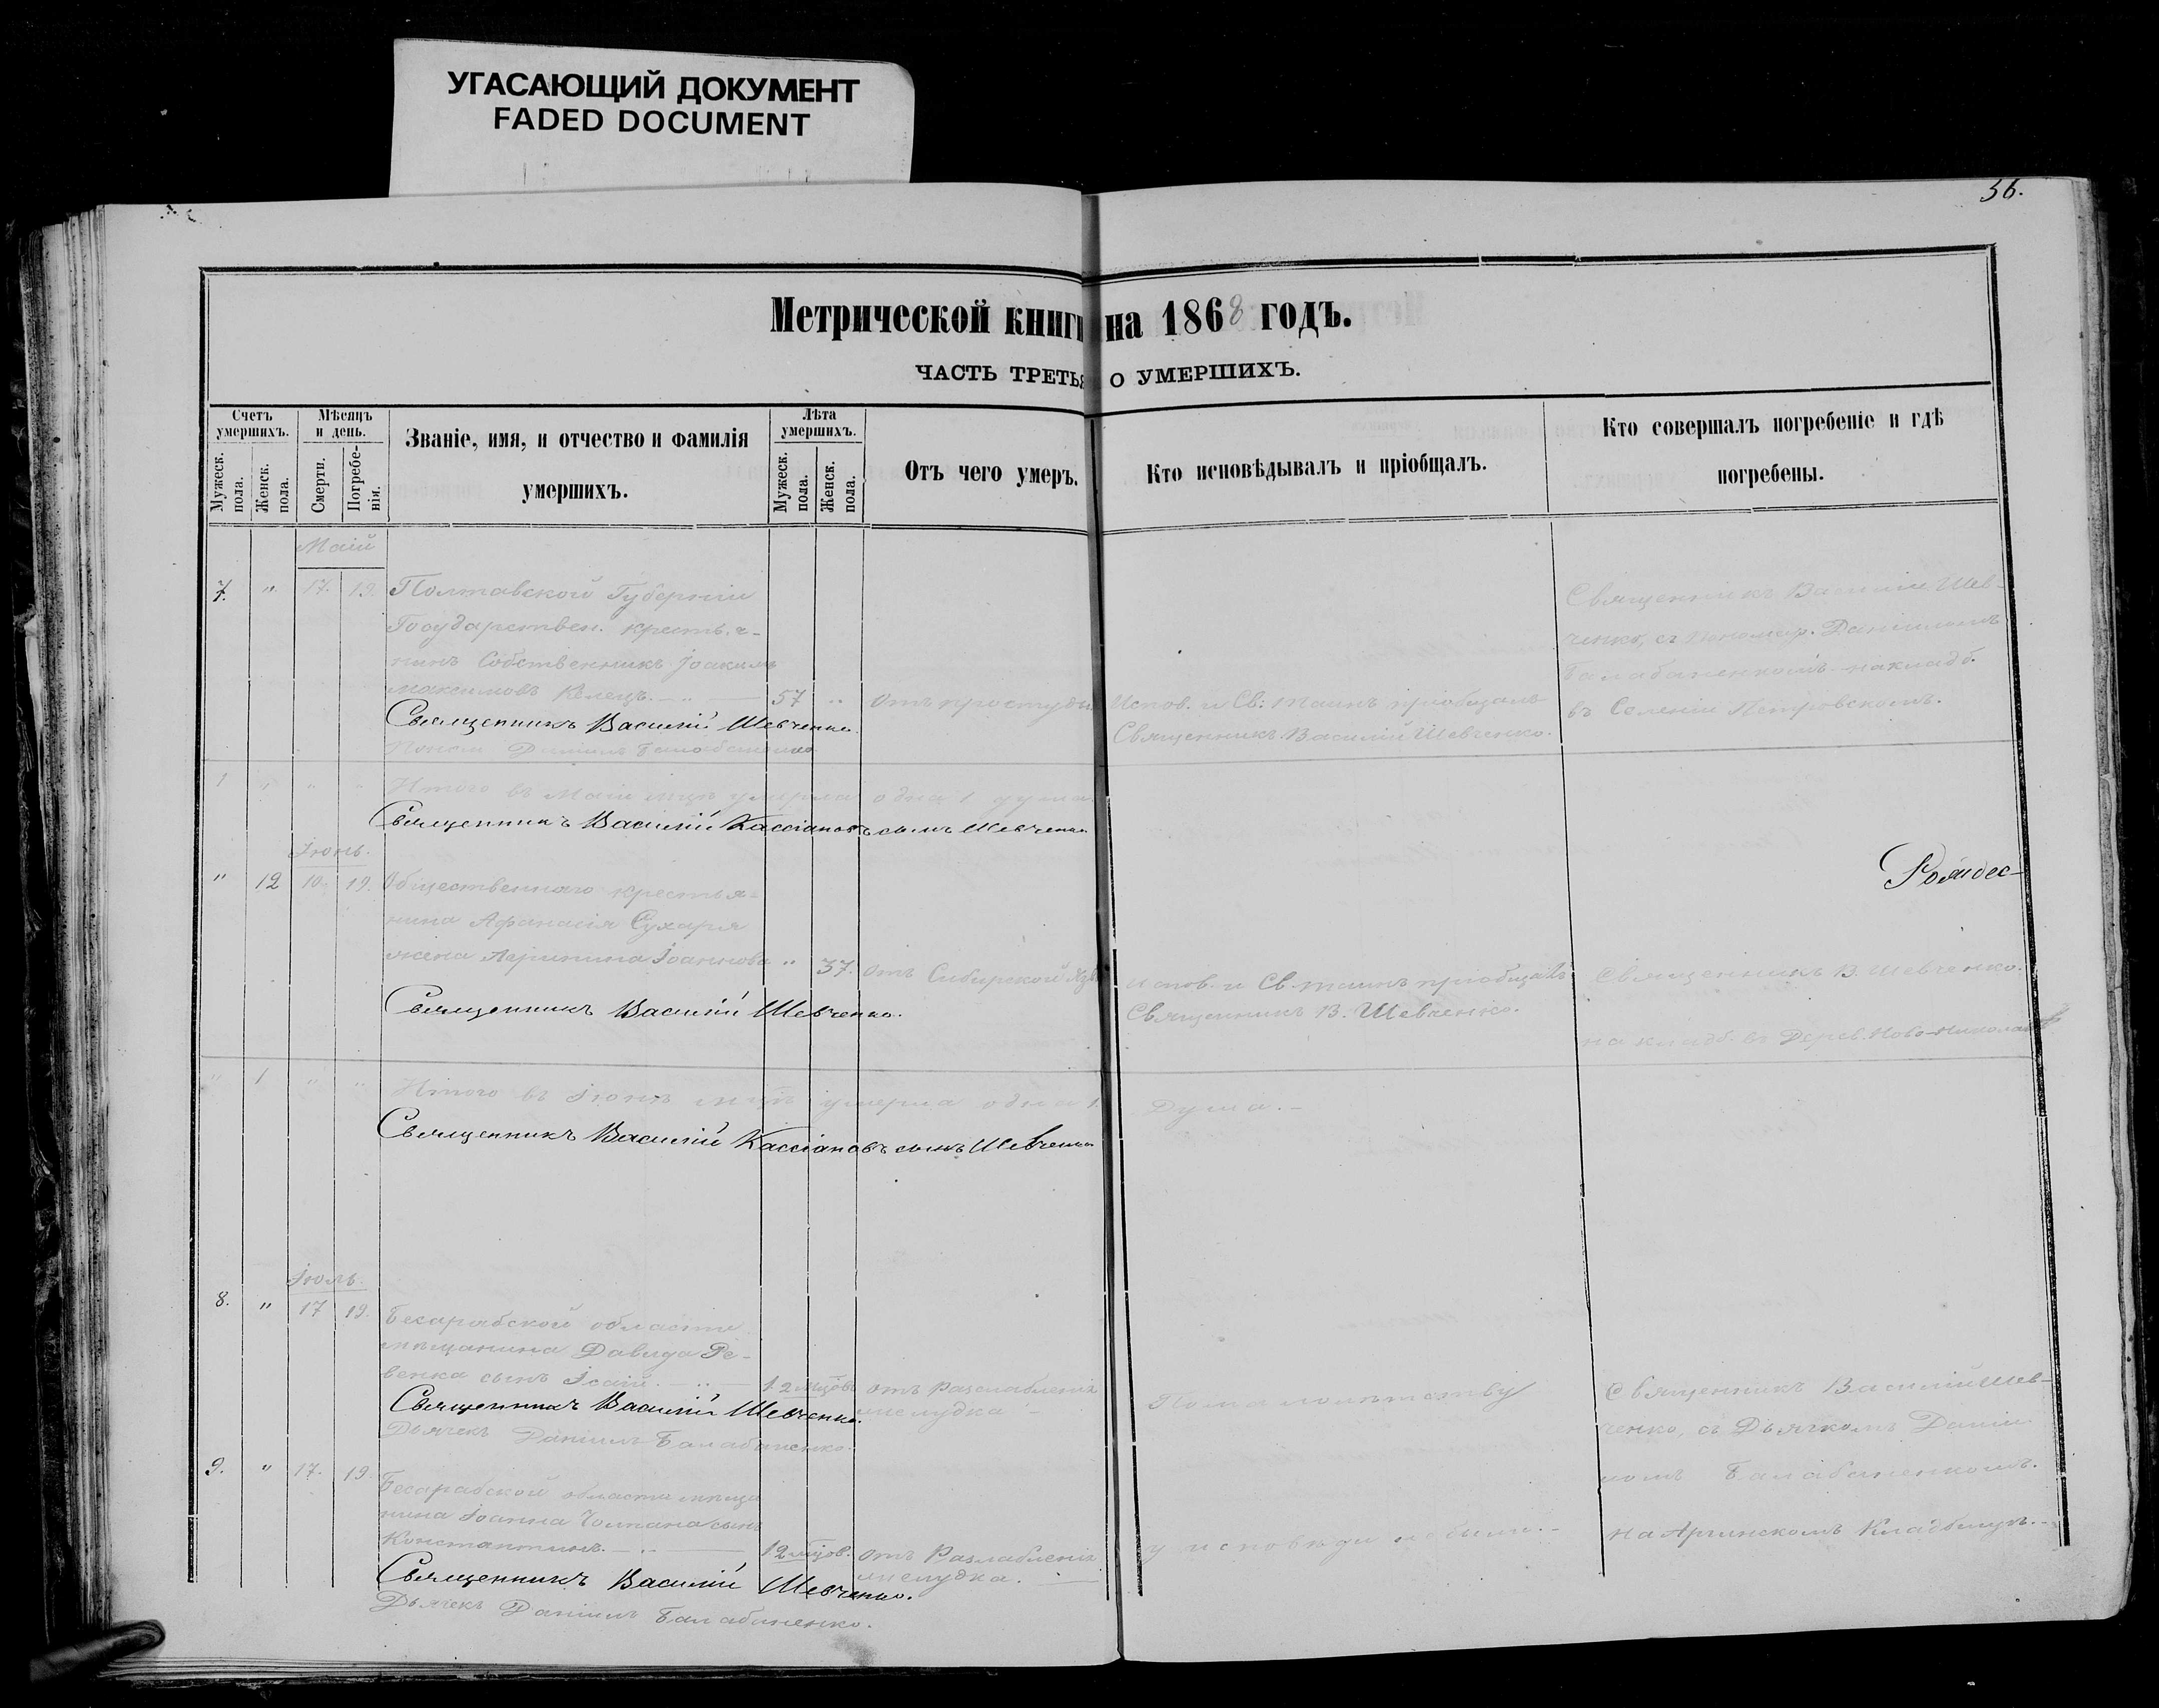 УГАСАЮЩИЙ ДОКУМЕНТ
FADED DOCUMENT
56.
Метрической книги на 1868 годъ.
ЧАСТЬ ТРЕТЬЯ О УМЕРШИХЪ.
Счетъ умершихъ.
Мужеск. пола.
Женск. пола.
Мѣсяцъ и день.
Смерти.
Погребе-
нія.
Званіе, имя, и отчество и фамилія
умершихъ.
Лѣта умершихъ.
Мужеск. пола.
Женск. пола.
Отъ чего умеръ.
Кто исповѣдывалъ и пріобщалъ.
Кто совершалъ погребеніе и гдѣ
погребены.
Маій
7. " 17. 19. Полтавской Губерніи
Государствен. крестья-
нинъ Собственникъ Іоакимъ
Максимовъ 57 " Отъ простуды
Священникъ Василій Шевченко.
Даніилъ Балабаненко
Испов. и Св: Таинъ пріобщалъ
Священникъ Василій Шевченко.
Священникъ Василій Шев-
ченко, съ Пономар. Даніиломъ
Балабаненкомъ на кладб.
въ Селеніи Петровскомъ.
1 " " " Итого въ Маіи мцѣ умерла одна 1 душа
Священникъ Василій Кассіановъ сынъ Шевченко
Іюнь.
" 12 10. 19. Общественнаго крестья-
нина Афанасія Сухаря
жена Агрипина Іоаннова " 37. отъ Сибирской язвы
Священникъ Василій Шевченко.
Испов. и Св. таинъ пріобщалъ
Священникъ В. Шевченко.
Священникъ В. Шевченко.
на кладб. въ Дерев. Ново-Николаевк
" 1 " " Итого въ Іюнѣ мцѣ умерла одна 1. Душа.
Священникъ Василій Кассіановъ сынъ Шевченко
Іюль.
8. " 17 19. Бесарабской области
мѣщанина Давида Ре-
венка сынъ Ісаій. 12 мцов отъ Разслабленія
желудка
Священникъ Василій Шевченко.
Дьячекъ Даніилъ Балабаненко.
По малолѣтству
Священникъ Василій Шев-
ченко, съ Дьячкомъ Даніи-
ломъ Балабаненкомъ.
9. " 17. 19. Бесарабской области мѣща
нина Іоанна Чолпана сынъ
Константинъ. 12 мцов. отъ Разслабленія
желудка.
Священникъ Василій Шевченко.
Дьячекъ Даніилъ Балабаненко.
у исповѣди не были.
на Аргинскомъ Кладбищѣ.